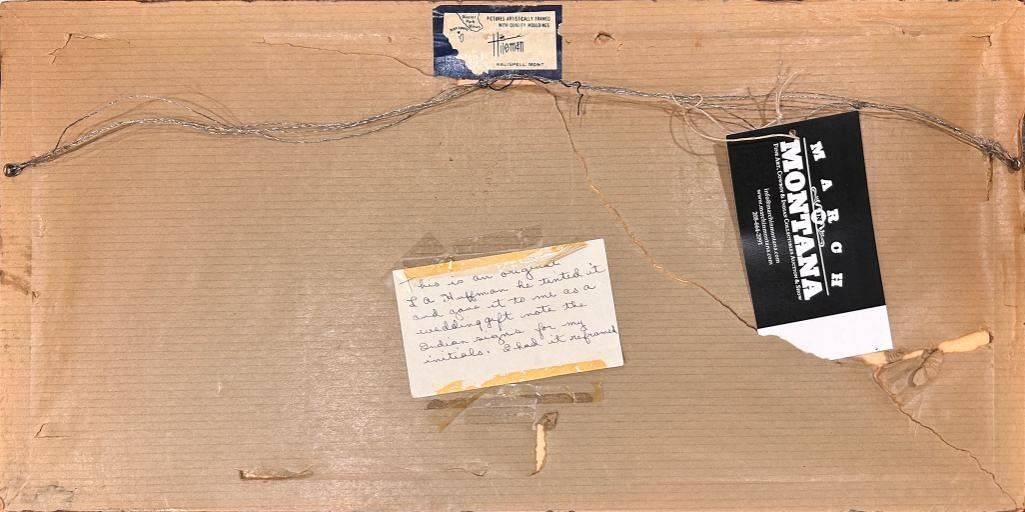 Glacier
Park
PICTURES ARTISTICALLY FRAMED
WITH QUALITY MOULDINGS
Hileman
KALISPELL, MONT.
MARCH
IN
MONTANA
Fine Art, Cowboy & Indian Collectibles Auction & Show
info@marchinmontana.com
www.marchinmontana.com
208-664-2091
This is an original
L A Huffman he tinted it
and gave it to me as a
wedding gift note the
Indian signs for my
initials. I had it reframed